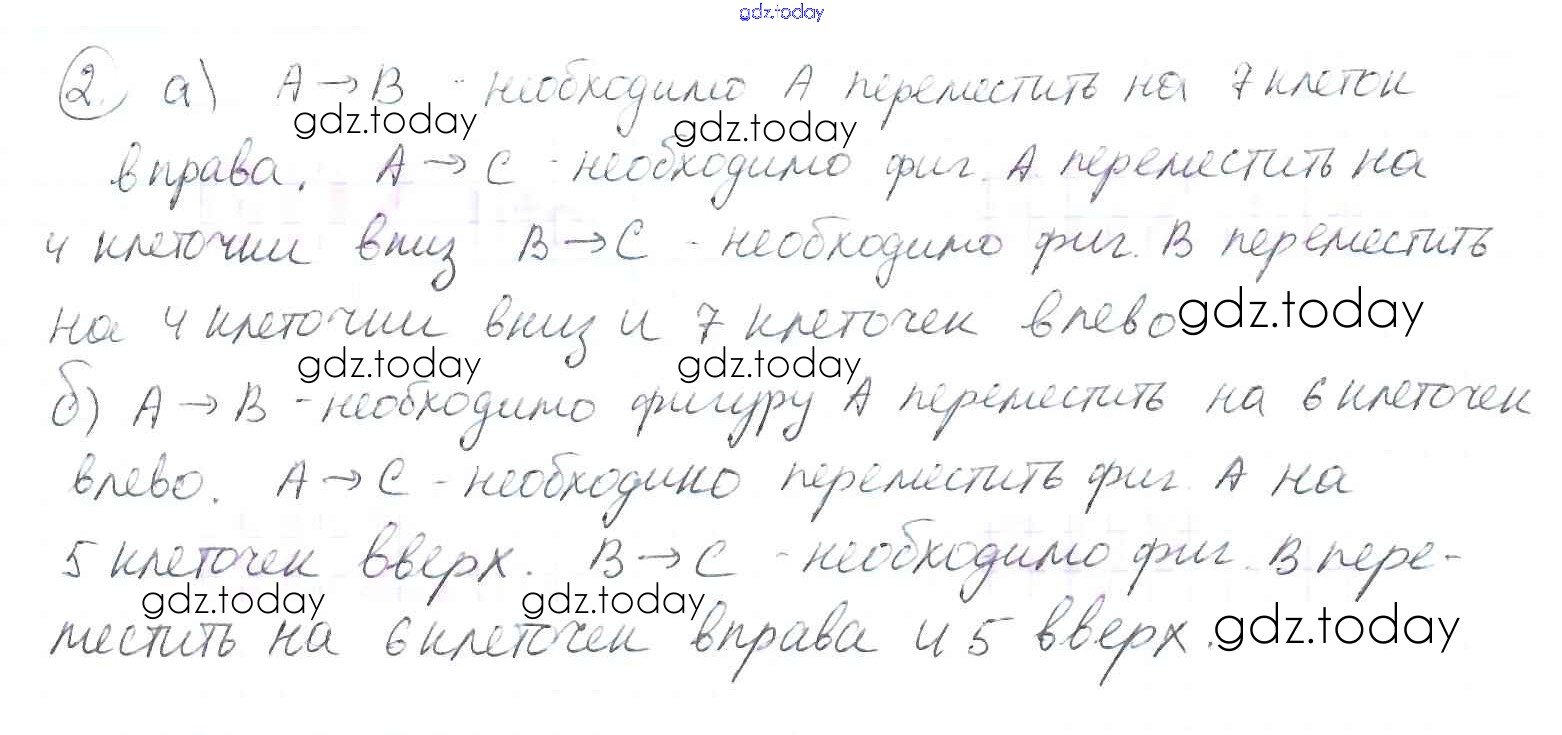 gdz.today
2. а) А → В - необходимо А переместить на 7 клеток
gdz.today gdz.today
вправа. А → С - необходимо фиг. А переместить на
4 клеточки вниз В → С - необходимо фиг. В переместить
на 4 клеточки вниз и 7 клеточек влево gdz.today
gdz.today gdz.today
б) А → В - необходимо фигуру А переместить на 6 клеточек
влево. А → С - необходимо переместить фиг. А на
5 клеточек вверх. В → С - необходимо фиг. В пере-
gdz.today gdz.today
местить на 6 клеточек вправа и 5 вверх. gdz.today